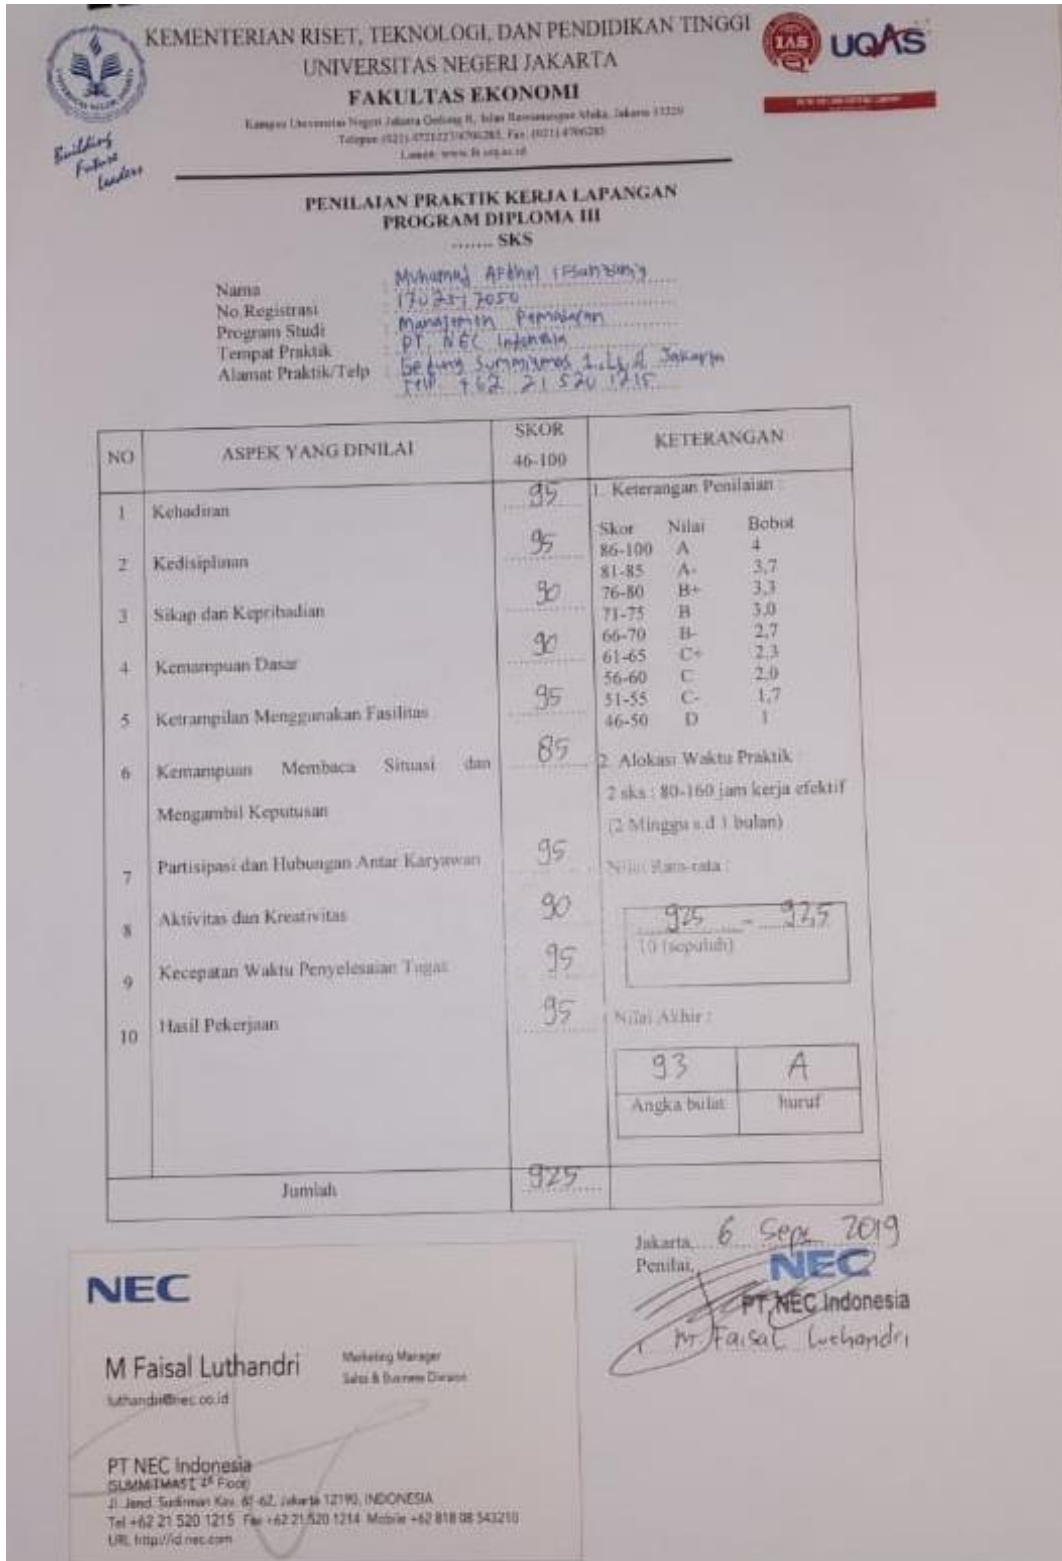 KEMENTERIAN RISET, TEKNOLOGI, DAN PENDIDIKAN TINGGI
UNIVERSITAS NEGERI JAKARTA
FAKULTAS EKONOMI
Kampus Universitas Negeri Jakarta Gedung R, Jalan Rawamangun Muka, Jakarta 13220
IAS UQAS
Building
Future
Leaders
PENILAIAN PRAKTIK KERJA LAPANGAN
PROGRAM DIPLOMA III
....... SKS
Nama : Muhamad
No.Registrasi :
Program Studi : Manajemen Pemasaran
Tempat Praktik : PT. NEC Indonesia
Alamat Praktik/Telp : Gedung Jakarta
Telp +62 21 520 1215
NO ASPEK YANG DINILAI SKOR 46-100 KETERANGAN
1 Kehadiran 95
2 Kedisiplinan 95
3 Sikap dan Kepribadian 90
4 Kemampuan Dasar 90
5 Ketrampilan Menggunakan Fasilitas 95
6 Kemampuan Membaca Situasi dan 85
Mengambil Keputusan
7 Partisipasi dan Hubungan Antar Karyawan 95
8 Aktivitas dan Kreativitas 90
9 Kecepatan Waktu Penyelesaian Tugas 95
10 Hasil Pekerjaan 95
Jumlah 925
1. Keterangan Penilaian :
Skor Nilai Bobot
86-100 A 4
81-85 A- 3,7
76-80 B+ 3,3
71-75 B 3,0
66-70 B- 2,7
61-65 C+ 2,3
56-60 C 2,0
51-55 C- 1,7
46-50 D 1
2. Alokasi Waktu Praktik :
2 sks : 80-160 jam kerja efektif
(2 Minggu s.d 1 bulan)
Nilai Rata-rata :
925 = 92,5
10 (sepuluh)
Nilai Akhir :
93 A
Angka bulat huruf
Jakarta, 6 Sept 2019
Penilai,
NEC
PT NEC Indonesia
M. Faisal Luthandri
NEC
M Faisal Luthandri
Marketing Manager
Sales & Business Division
luthandri@nec.co.id
PT NEC Indonesia
Jl. Jend. Sudirman Kav. 61-62, Jakarta 12190, INDONESIA
Tel +62 21 520 1215 Fax +62 21 520 1214 Mobile +62 818 08 543210
URL http://id.nec.com